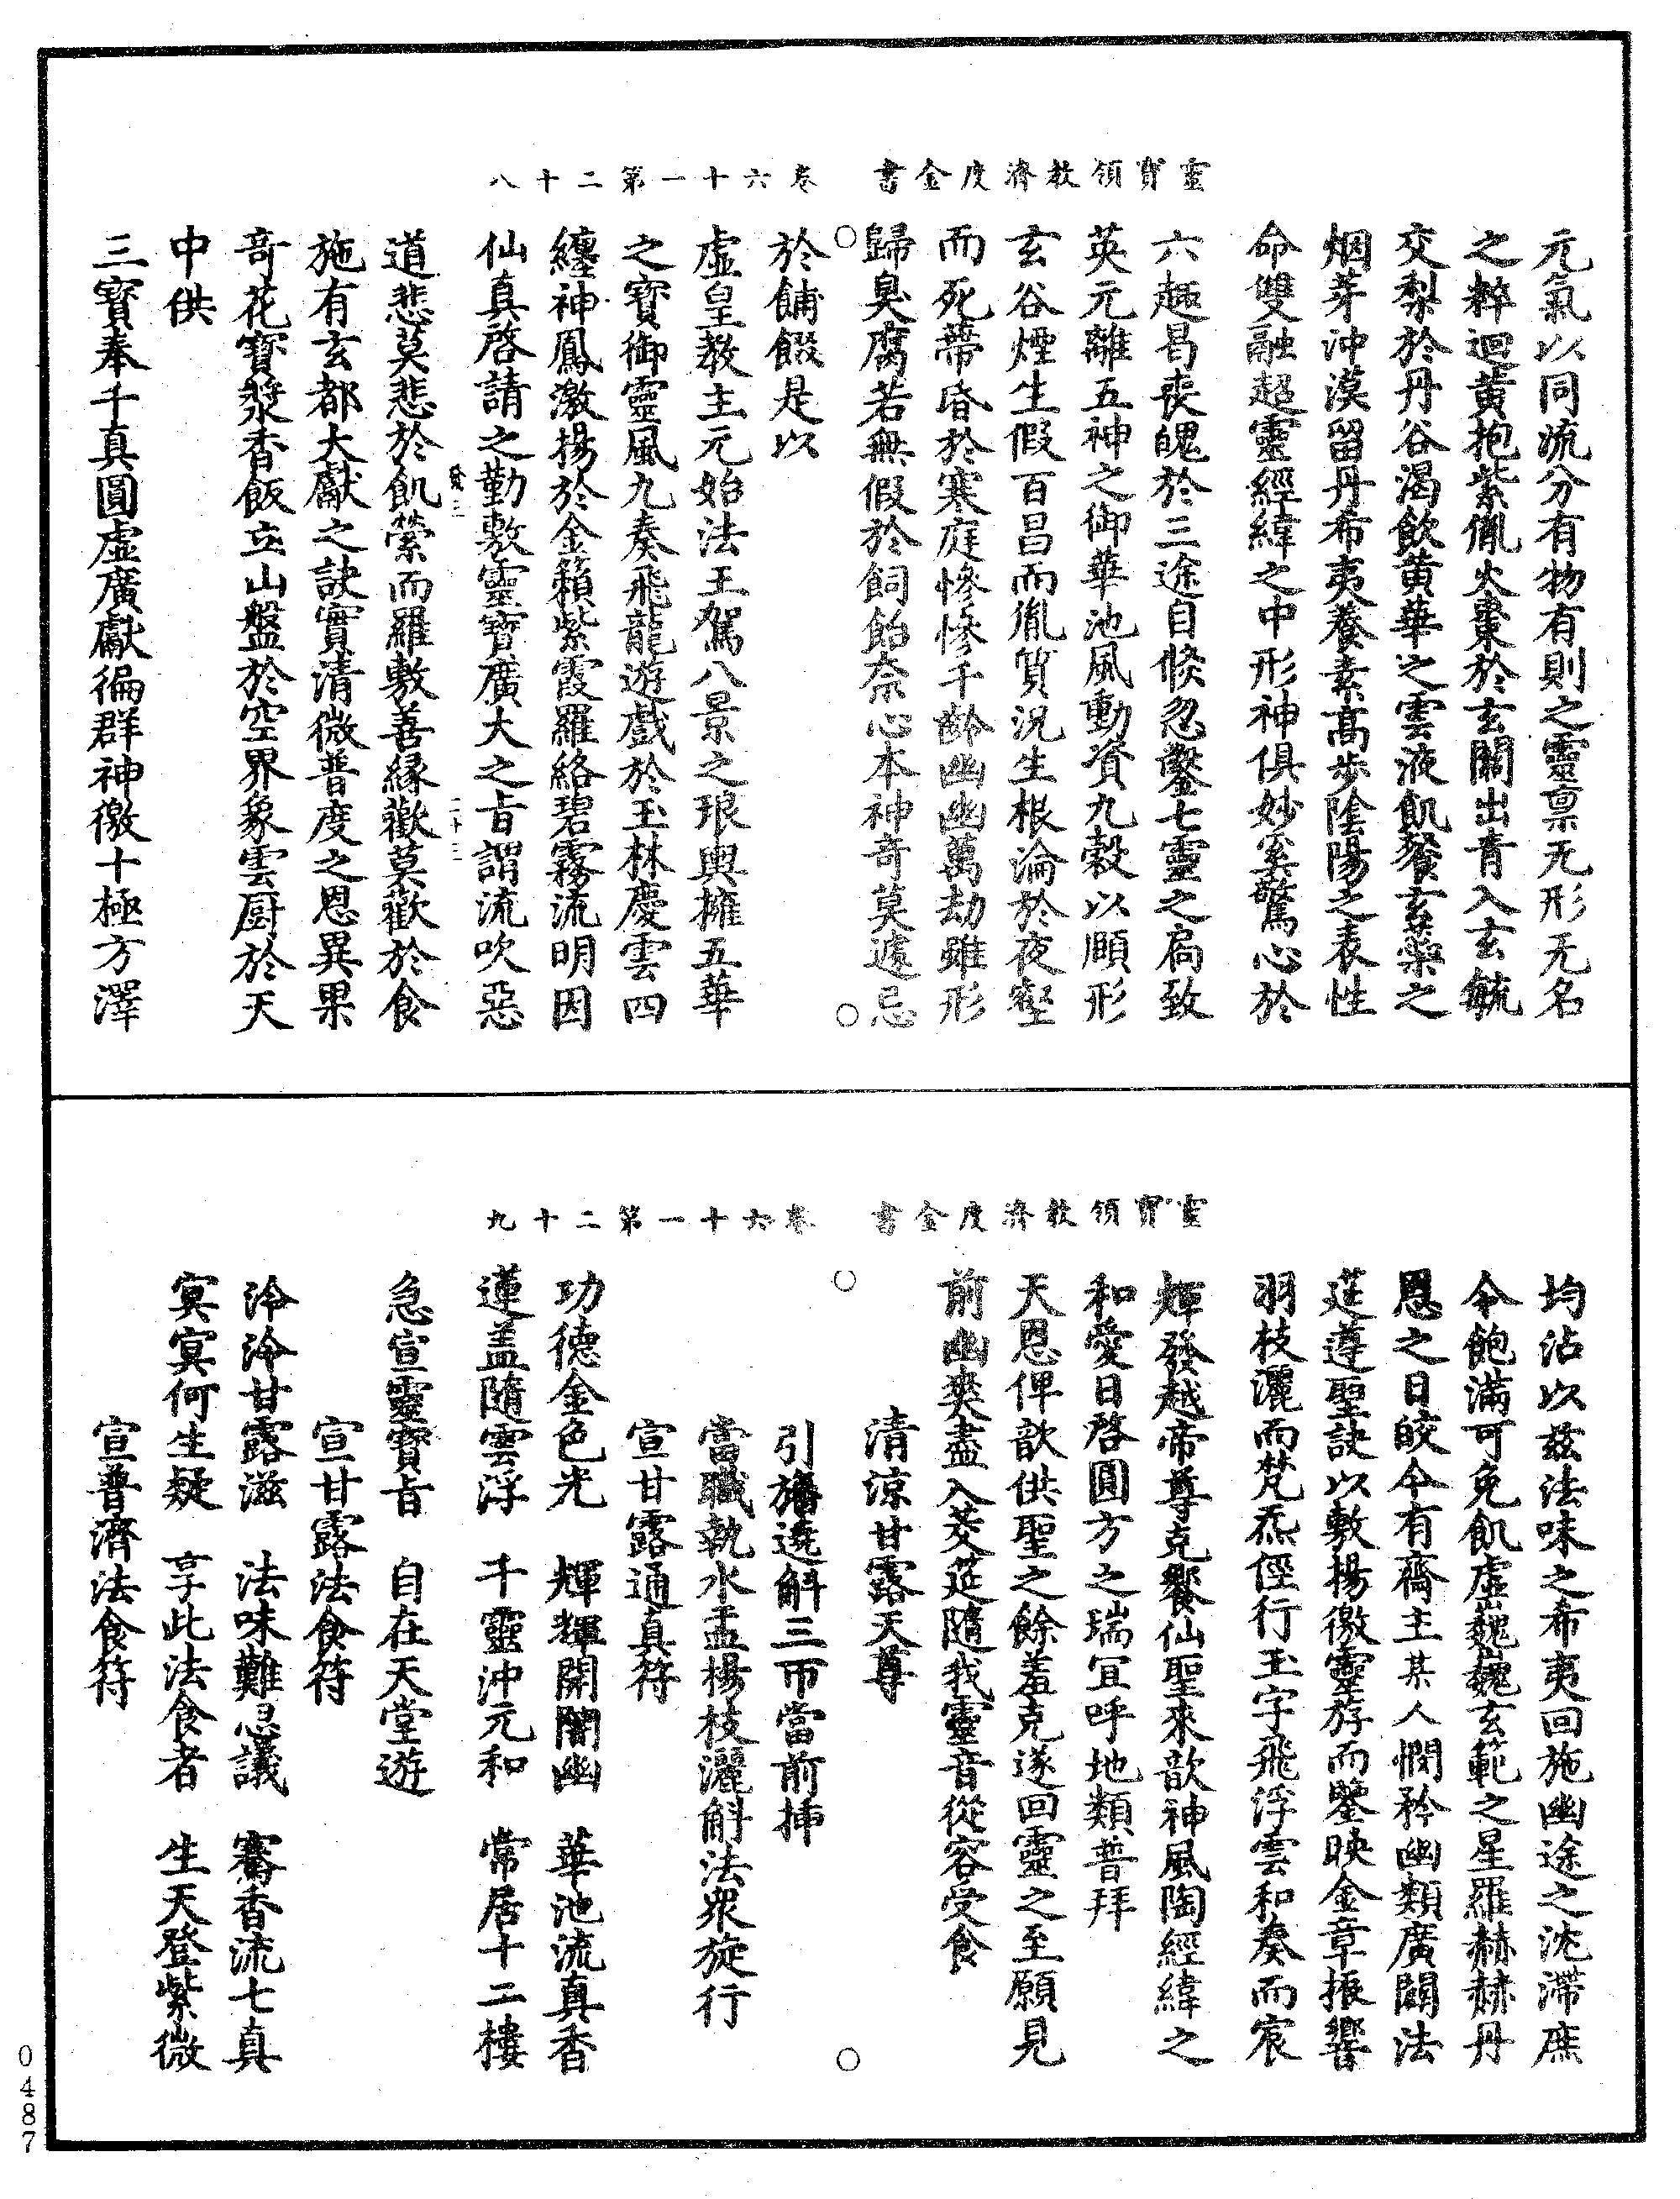 靈寶領教濟度金書　卷六十一第二十八
元氣以同流分有物有則之靈稟无形无名
之粹迴黃抱紫胤火棗於玄關出青入玄毓
交梨於丹谷渴飲黃華之雲液飢餐玄藥之
烟芽沖漠留丹希夷養素高步陰陽之表性
命雙融超靈經緯之中形神俱妙奚驚心於
六趣曷喪魄於三途自倏忽鑿七靈之扃致
英元離五神之御華池風動資九穀以頤形
玄谷煙生假百昌而胤質況生根淪於夜壑
而死蔕昏於寒庭慘慘千齡幽幽萬劫雖形
歸臭腐若無假於飼飴奈心本神奇莫遽忘
於餔餟是以
虛皇教主元始法王駕八景之琅輿擁五華
之寶御靈風九奏飛龍遊戲於玉林慶雲四
纏神鳳激揚於金籟紫霞羅絡碧霧流明因
仙真啓請之勤敷靈寶廣大之旨謂流吹惡
道悲莫悲於飢縈而羅敷善緣歡莫歡於食
施有玄都大獻之訣實清微普度之恩異果
奇花寶漿香飯立山盤於空界象雲厨於天
中供
三寶奉千真圓虛廣獻徧群神徼十極方澤
靈寶領教濟度金書　卷六十一第二十九
均沾以茲法味之希夷回施幽途之沈滯庶
令飽滿可免飢虛巍巍玄範之星羅赫赫丹
恩之日皎今有齋主某人憫矜幽類廣闢法
莚遵聖訣以敷揚徼靈斿而鑒映金章振響
羽枝灑而梵炁徑行玉字飛浮雲和奏而宸
輝發越帝尊克饗仙聖來歆神風陶經緯之
和愛日啓圓方之瑞冝呼地類普拜
天恩俾歆供聖之餘羞克遂回靈之至願見
前幽爽盡入茭莚隨我靈音從容受食
清涼甘露天尊
引旛遶斛三帀當前揷
當職執水盂楊枝灑斛法衆旋行
宣甘露通真符
功德金色光　輝輝開闇幽　華池流真香
蓮盖隨雲浮　千靈沖元和　常居十二樓
急宣靈寶旨　自在天堂遊
宣甘露法食符
泠泠甘露滋　法味難思議　騫香流七真
冥冥何生疑　享此法食者　生天登紫微
宣普濟法食符
0487